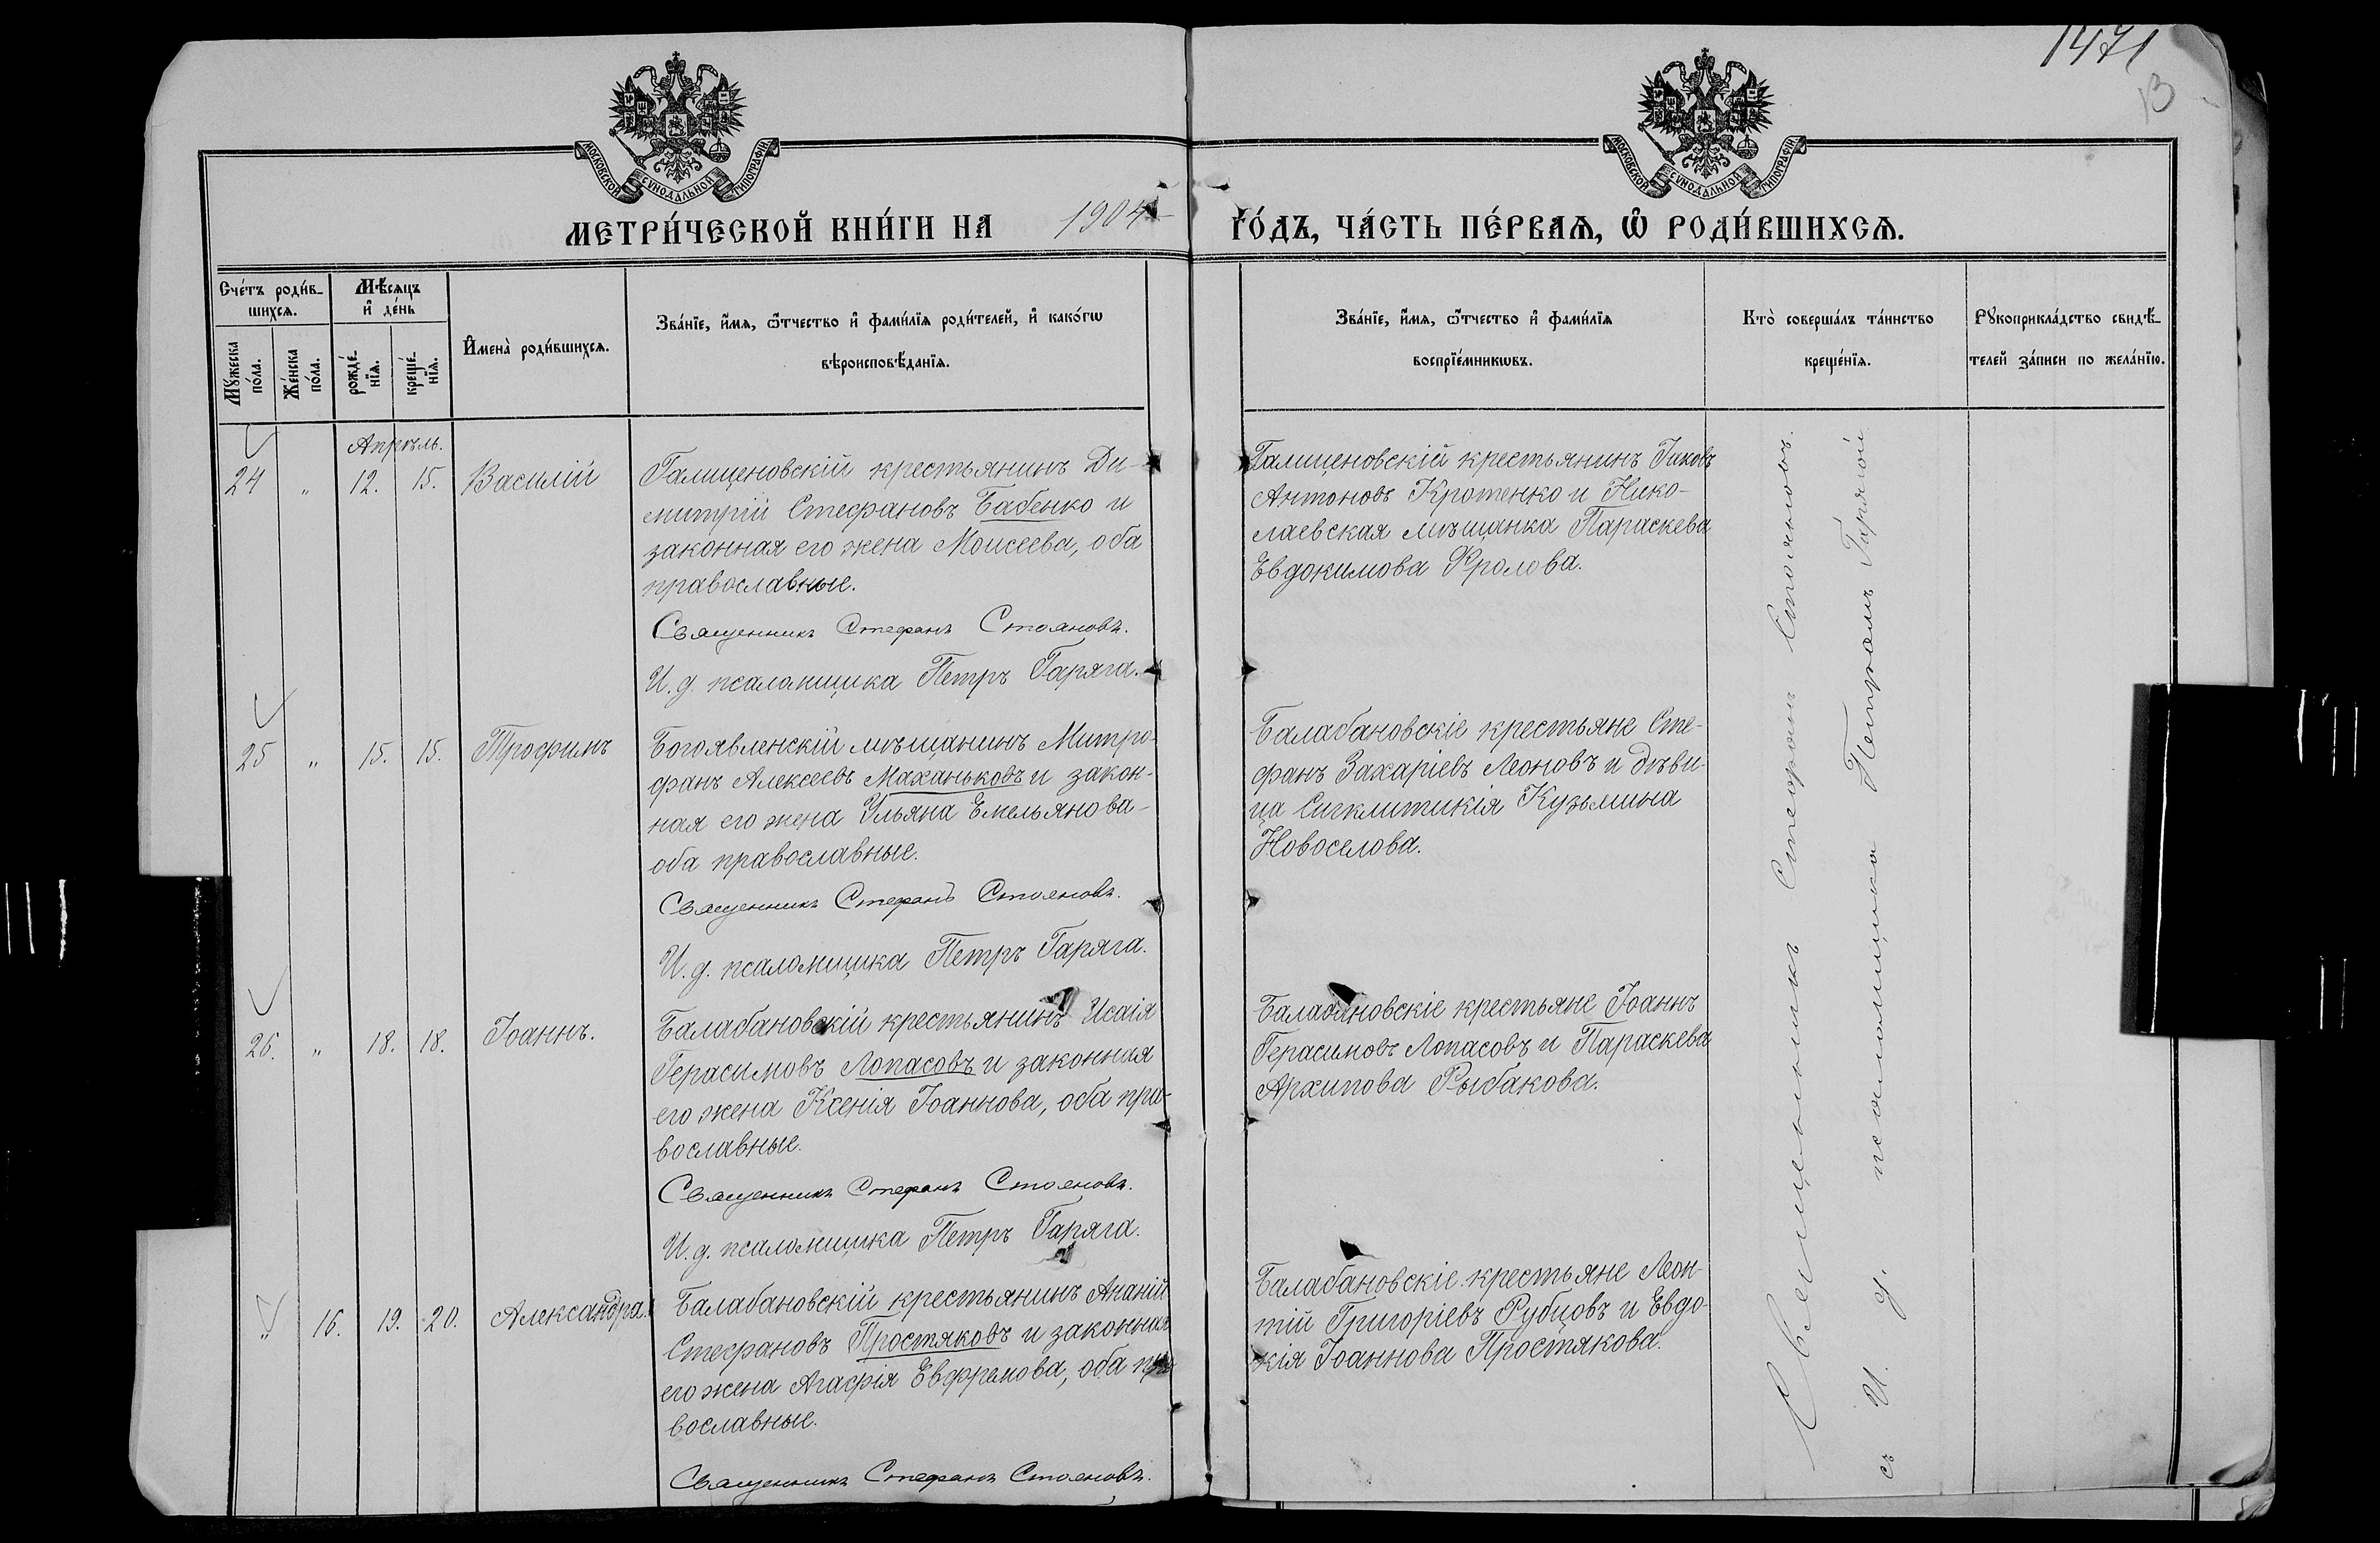 1471
13
МОСКОВСКОЙ СѴНОДАЛЬНОЙ ТИПОГРАФІИ
МОСКОВСКОЙ СѴНОДАЛЬНОЙ ТИПОГРАФІИ
МЕТРИ́ЧЕСКОЙ КНИ́ГИ НА 1904 ГО́ДЪ, ЧА́СТЬ ПЕ́РВАѦ, Ѡ҆ РОДИ́ВШИХСѦ.
Сче́тъ роди́в-
шихсѧ.
Мꙋ́жеска
по́ла.
Же́нска
по́ла.
Мѣ́сѧцъ
и҆ де́нь
рожде́-
нїѧ.
креще́-
нїѧ.
И҆мена̀ роди́вшихсѧ.
Зва́нїе, и҆́мѧ, ѻ҆́тчество и҆ фами́лїѧ роди́телей, и҆ како́гѡ
вѣроисповѣ́данїѧ.
Зва́нїе, и҆́мѧ, ѻ҆́тчество и҆ фами́лїѧ
воспрїе́мникѡвъ.
Кто̀ соверша́лъ та́инство
креще́нїѧ.
Рꙋкоприкла́дство свидѣ́-
телей за́писи по жела́нїю.
Апрѣль.
24 " 12. 15. Василій
Галиценовскій крестьянинъ Ди-
митрій Стефановъ Бабенко и
законная его жена Моисеева, оба
православные.
Священникъ Стефанъ Стояновъ.
И. д. псаломщика Петръ Гаряга.
Галиценовскій крестьянинъ Іаковъ
Антоновъ Кротенко и Нико-
лаевская мѣщанка Параскева
Евдокимова Фролова.
25 " 15. 15. Трофимъ
Богоявленскій мѣщанинъ Митро-
фанъ Алексеевъ Маханьковъ и закон-
ная его жена Ульяна Емельянова-
оба православные.
Священникъ Стефанъ Стояновъ.
И. д. псаломщика Петръ Гаряга.
Балабановскіе крестьяне Сте-
фанъ Захаріевъ Леоновъ и дѣви-
ца Сигклитикія Кузьмина
Новоселова.
26. " 18. 18. Іоаннъ.
Балабановскій крестьянинъ Исаія
Герасимовъ Лопасовъ и законная
его жена Ксенія Іоаннова, оба пра-
вославные.
Священникъ Стефанъ Стояновъ.
И. д. псаломщика Петръ Гаряга.
Балабановскіе крестьяне Іоаннъ
Герасимовъ Лопасовъ и Параскева
Архипова Рыбакова.
" 16. 19. 20. Александра.
Балабановскій крестьянинъ Ананій
Стефановъ Простяковъ и законная
его жена Агафія Евфремова, оба пра-
вославные.
Священникъ Стефанъ Стояновъ.
Балабановскіе крестьяне Леон-
тій Григоріевъ Рубцовъ и Евдо-
кія Іоаннова Простякова.
Священникъ Стефанъ Стояновъ.
съ И. д. псаломщика Петромъ Гарягой